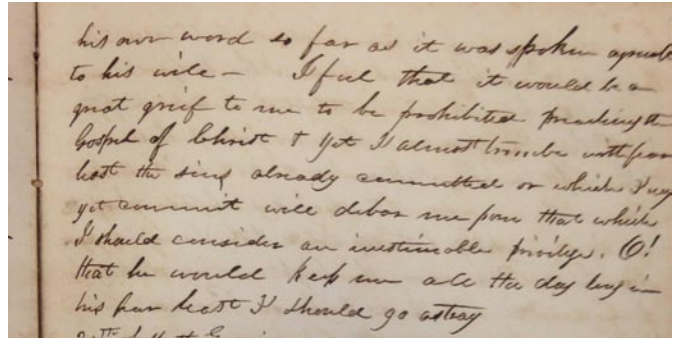 his own word so far as it was spoken agreeab
to his wile – I feel that it would be a
great grief to me to be prohibited preaching the
Gospel of Christ & yet I almost tremble with fear
least the sins already committed or which I may
yet commit will debar me from that which
I should consider an inestimable privilege. O!
that he would keep me all the day long in
his fear least I should go astray